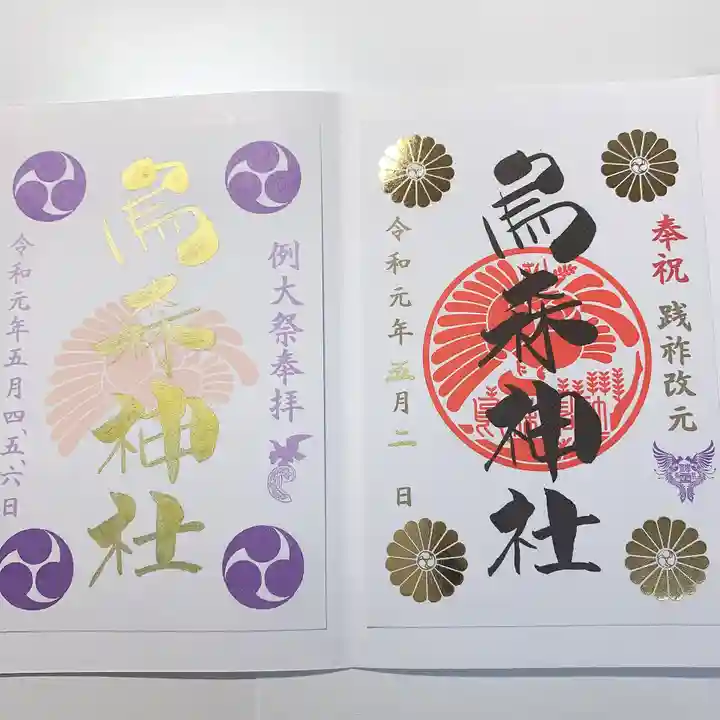 奉祝
践祚改元
烏森神社
令和元年五月二日
例大祭奉拝
烏森神社
令和元年五月四、五、六日